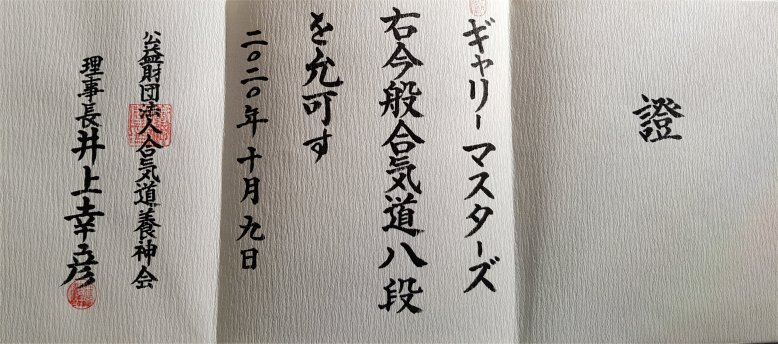 證
ギャリーマスターズ
右今般合気道八段
を允可す
二〇二〇年十月九日
公益財団法人合気道養神会
理事長井上幸彦